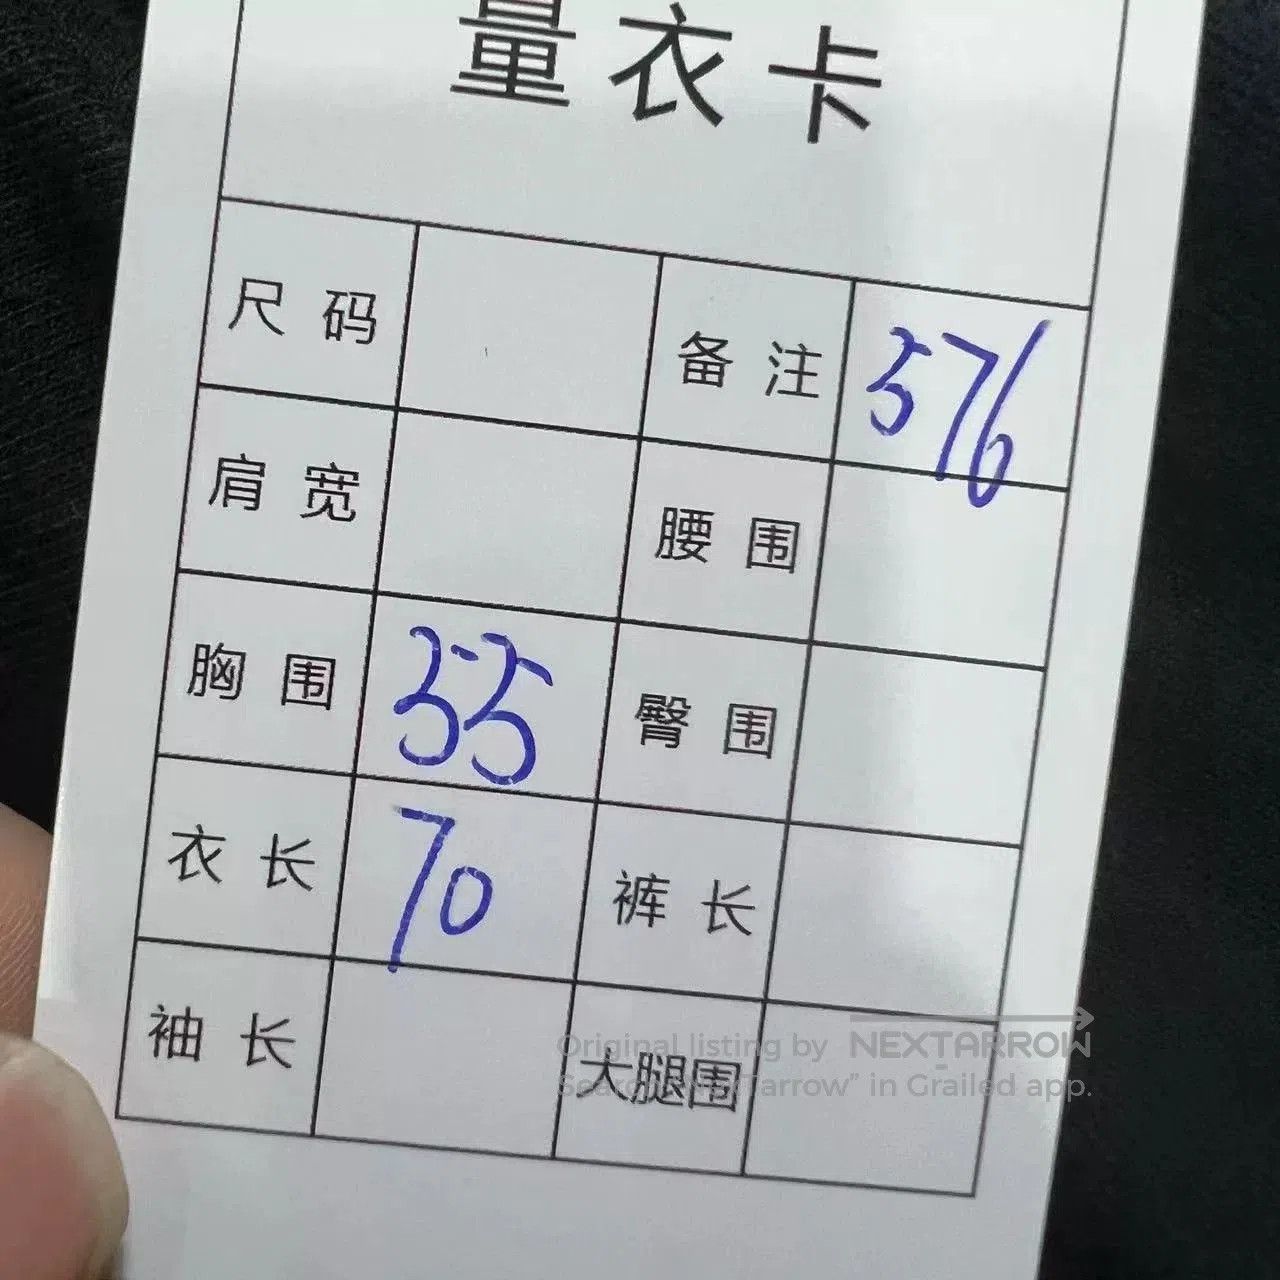 量衣卡
尺码 备注 576
肩宽 腰围
胸围 55 臀围
衣长 70 裤长
袖长 大腿围
Original listing by NEXTARROW
Search "NEXTarrow" in Grailed app.